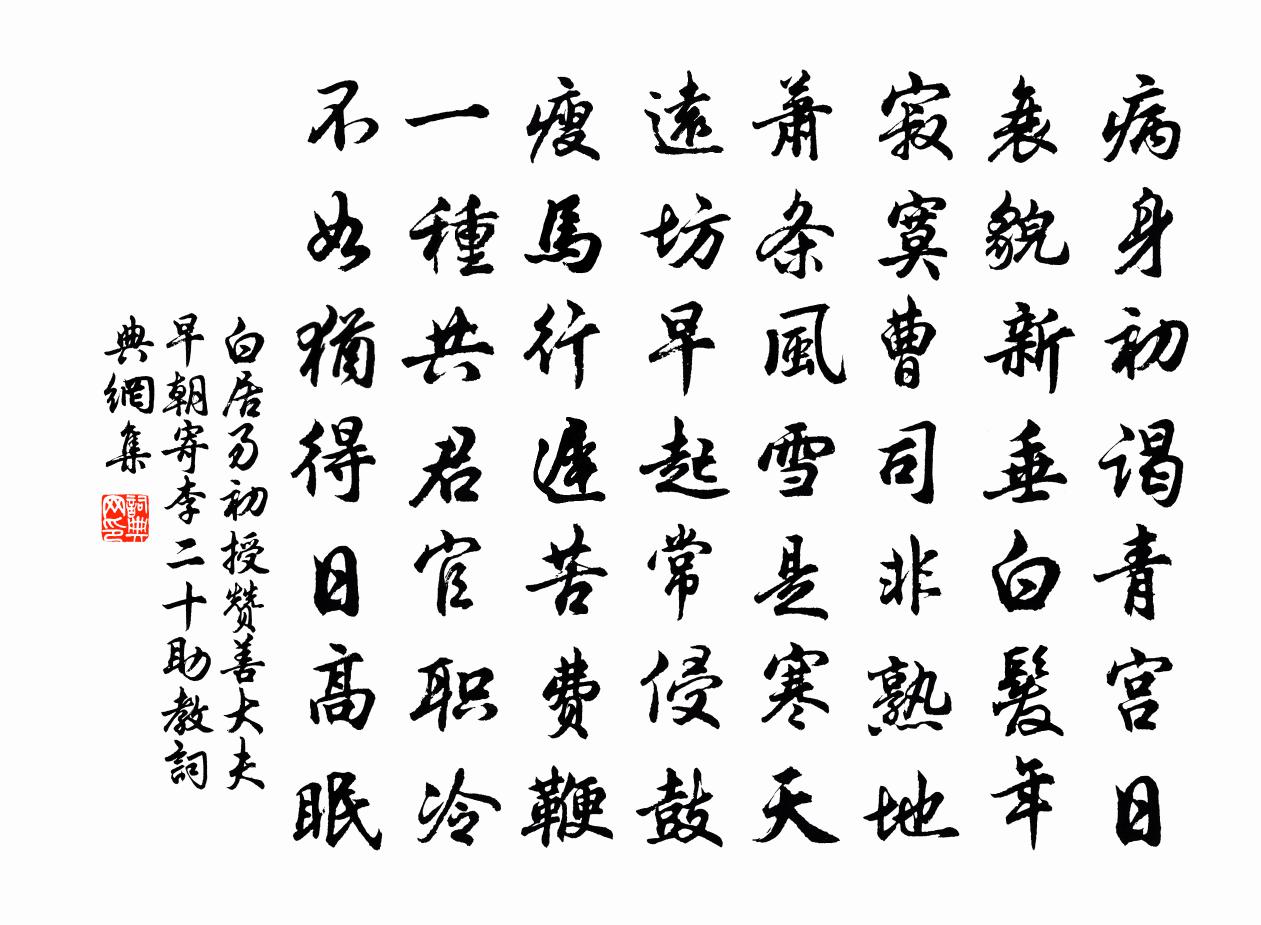 病身初谒青宫日
衰貌新垂白髮年
寂寞曹司非熟地
萧条風雪是寒天
遠坊早起常侵鼓
瘦馬行遲苦費鞭
一種共君官职冷
不如猶得日高眠
白居易初授赞善大夫
早朝寄李二十助教詞
典網集
詞典
网印